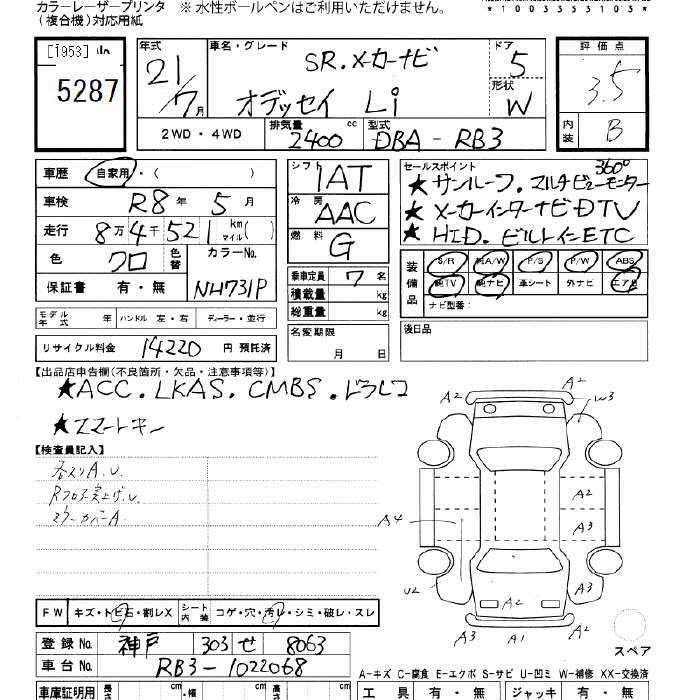 カラーレーザープリンタ ※ 水性ボールペンはご利用いただけません。
(複合機)対応用紙
*1003353103*
[1953]
5287
年式 21/7月
車名・グレード SR.メーカーナビ
オデッセイ Li
ドア 5
形状 W
評価点 3.5
内装 B
2WD・4WD 排気量 2400 cc 型式 DBA-RB3
車歴 自家用・( )
車検 R8年 5月
走行 8万4千521 km マイル( )
色 クロ 色替 カラーNo. NH731P
保証書 有・無
シフト IAT
冷房 AAC
燃料 G
乗車定員 7名
積載量 kg
総重量 kg
名変期限 月 日
セールスポイント 360°
★サンルーフ.マルチビューモニター
★メーカーインターナビDTV
★HID.ビルトインETC
装備品
S/R 純A/W P/S P/W ABS
純TV 純ナビ 革シート 外ナビ エアB
ナビ型番:
後日品
モデル年式 年 ハンドル 左・右 ディーラー・並行
リサイクル料金 14220円 預託済
【出品店申告欄(不良箇所・欠品・注意事項等)】
★ACC.LKAS.CMBS.ドラレコ
★スマートキー
【検査員記入】
各スリA.U.
ミラーカバーA
A2 A2 W3
A2
A4 A3
U2 A3
A2
A3 A1 A2
スペア
FW キズ・トビ石・割レX シート内装 コゲ・穴・汚レ・シミ・破レ・スレ
登録No. 神戸 303 せ 8063
車台No. RB3-1022068
A-キズ C-腐食 E-エクボ S-サビ U-凹ミ W-補修 XX-交換済
車庫証明用 長さ cm ・幅 cm cm
工具 有・無 ジャッキ 有・無